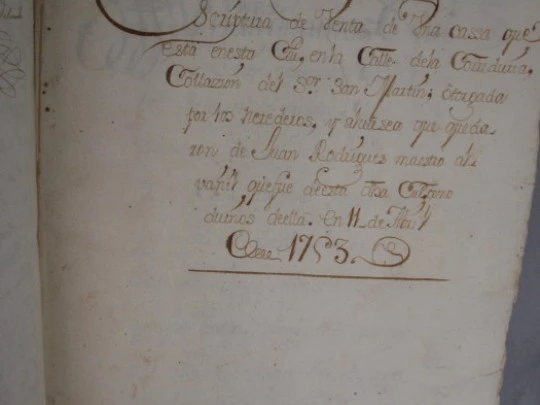 Scriptura de Venta de Vna cassa que
està enesta Ciu, en la Calle dela
Collazion del Sor San Martin; otorgada
por los herederos, y que queda
ron de Juan Rodrigues maestro al
vañil quefue deesta dha Ciu, como
dueños deella. en 11 de Abril
de 1753.